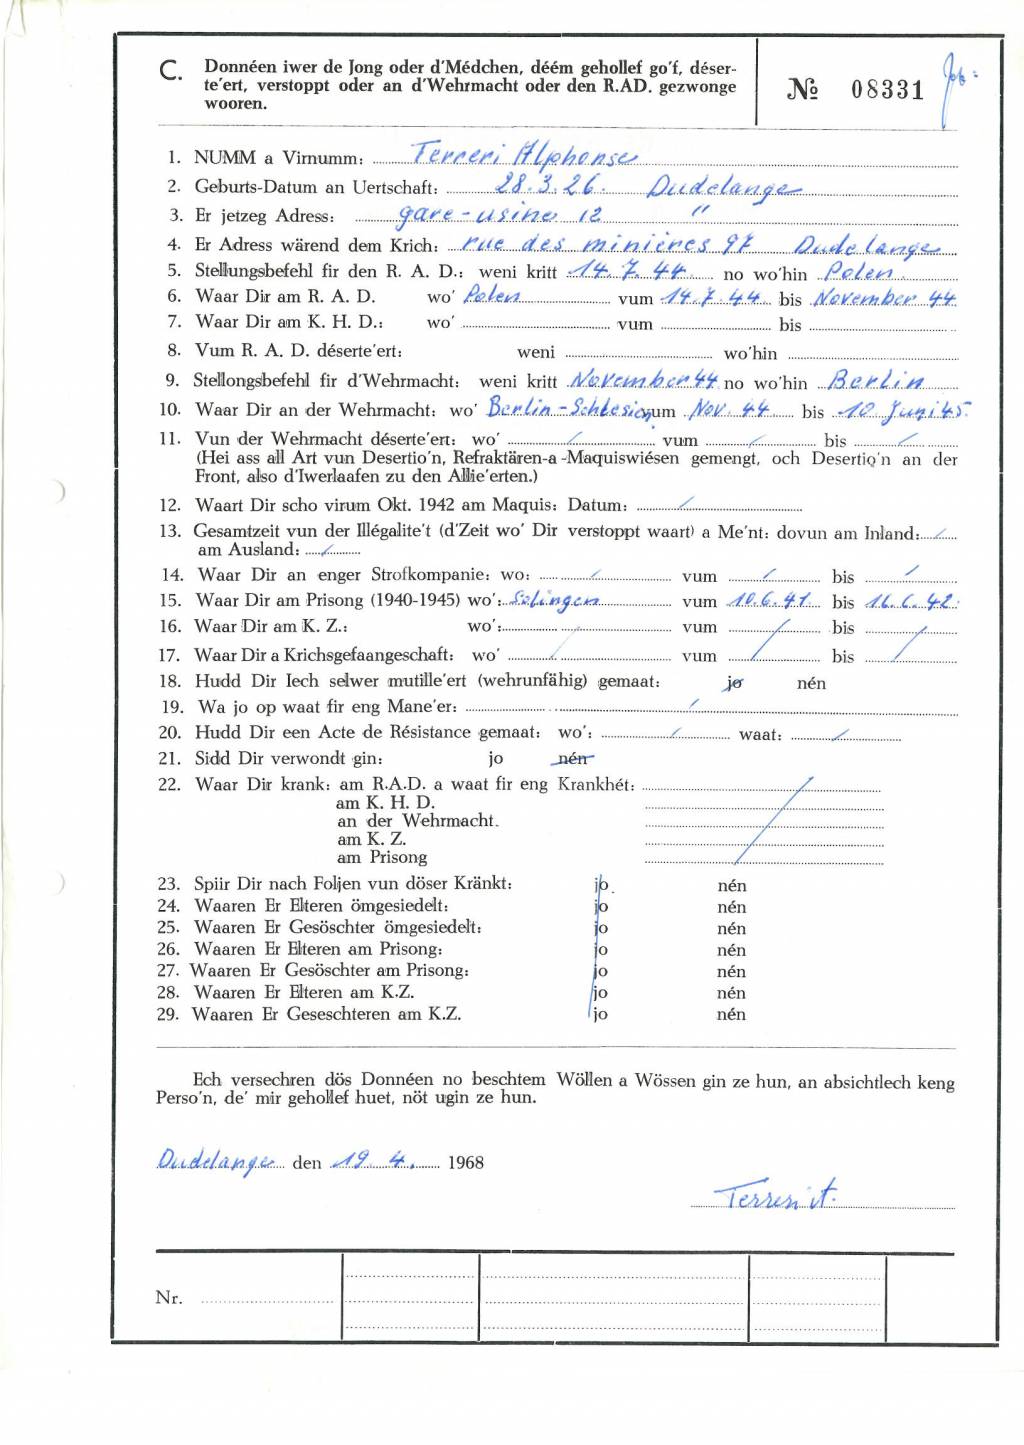 C. Donnéen iwer de Jong oder d'Médchen, déém gehollef go'f, déser-
te'ert, verstoppt oder an d'Wehrmacht oder den R.AD. gezwonge
wooren.
№ 08331
1. NUMM a Virnumm: Terreri Alphonse
2. Geburts-Datum an Uertschaft: 28.3.26. Dudelange
3. Er jetzeg Adress: gare-usine 12 "
4. Er Adress wärend dem Krich: rue des minières 97 Dudelange
5. Stellungsbefehl fir den R. A. D.: weni kritt 14.7.44 no wo'hin Polen
6. Waar Dir am R. A. D. wo' Polen vum 14.7.44 bis November 44
7. Waar Dir am K. H. D.: wo' vum bis
8. Vum R. A. D. déserte'ert: weni wo'hin
9. Stellongsbefehl fir d'Wehrmacht: weni kritt November 44 no wo'hin Berlin
10. Waar Dir an der Wehrmacht: wo' Berlin-Schlesien vum Nov. 44 bis 10 Juni 45.
11. Vun der Wehrmacht déserte'ert: wo' / vum / bis /
(Hei ass all Art vun Desertio'n, Refraktären-a-Maquiswiésen gemengt, och Desertio'n an der
Front, also d'Iwerlaafen zu den Allie'erten.)
12. Waart Dir scho virum Okt. 1942 am Maquis: Datum: /
13. Gesamtzeit vun der Illégalite't (d'Zeit wo' Dir verstoppt waart) a Me'nt: dovun am Inland: /
am Ausland: /
14. Waar Dir an enger Strofkompanie: wo: / vum / bis /
15. Waar Dir am Prisong (1940-1945) wo': Solingen vum 10.6.41 bis 16.6.42.
16. Waar Dir am K. Z.: wo': vum / bis /
17. Waar Dir a Krichsgefaangeschaft: wo' / vum / bis /
18. Hudd Dir Iech selwer mutille'ert (wehrunfähig) gemaat: jo nén
19. Wa jo op waat fir eng Mane'er: /
20. Hudd Dir een Acte de Résistance gemaat: wo': / waat: /
21. Sidd Dir verwondt gin: jo nén
22. Waar Dir krank: am R.A.D. a waat fir eng Krankhét:
am K. H. D.
an der Wehrmacht.
am K. Z.
am Prisong
23. Spiir Dir nach Foljen vun döser Kränkt: jo. nén
24. Waaren Er Elteren ömgesiedelt: jo nén
25. Waaren Er Gesöschter ömgesiedelt: jo nén
26. Waaren Er Elteren am Prisong: jo nén
27. Waaren Er Gesöschter am Prisong: jo nén
28. Waaren Er Elteren am K.Z. jo nén
29. Waaren Er Geseschteren am K.Z. jo nén
Ech versechren dös Donnéen no beschtem Wöllen a Wössen gin ze hun, an absichtlech keng
Perso'n, de' mir gehollef huet, nöt ugin ze hun.
Dudelange den 19. 4. 1968
Terreri A.
Nr.